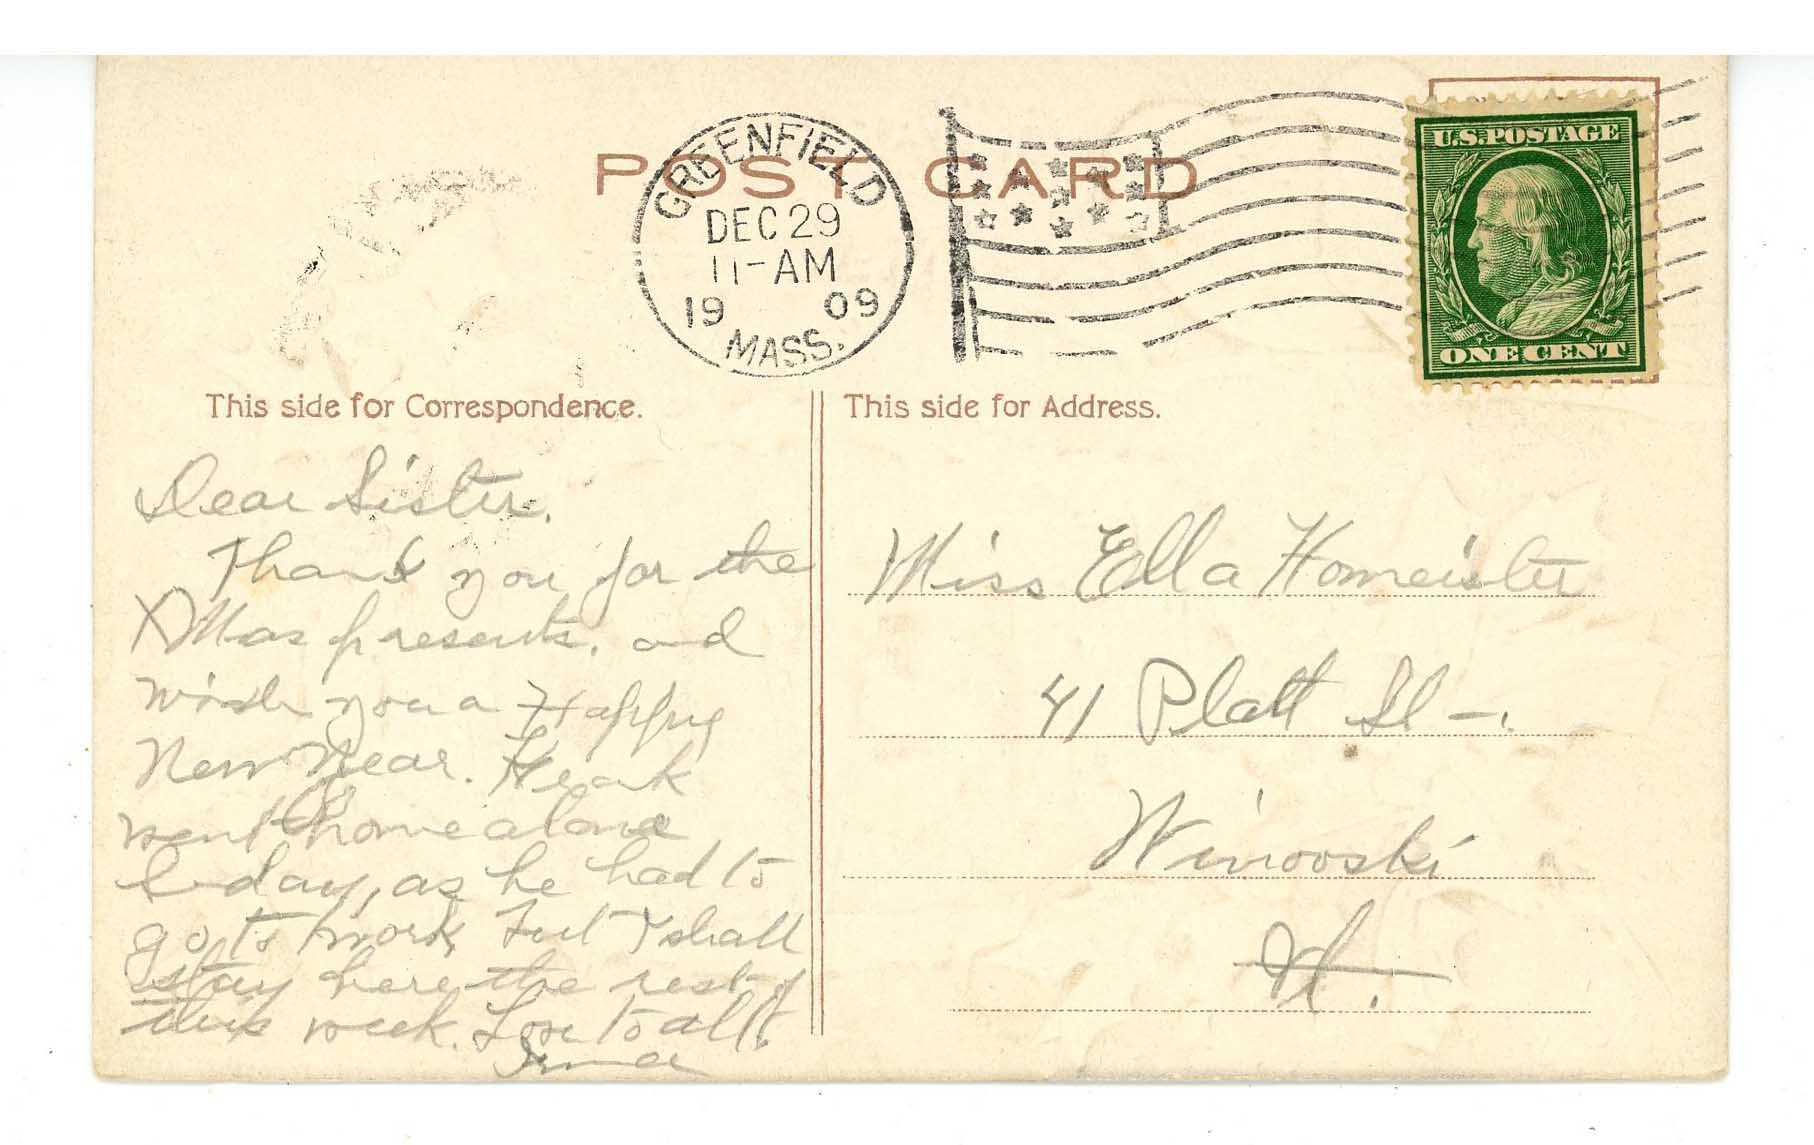 POST CARD
GREENFIELD
DEC 29
11-AM
19 09
MASS.
U.S. POSTAGE
ONE CENT
This side for Correspondence.
Dear Sister.
Thank you for the
XMas presents. and
wish you a Happy
New Year.
went home alone
to day, as he had to
go to work, but I shall
stay here the rest of
this week. Love to all.
Irma
This side for Address.
Miss Ella Homeister
41 Platt St-.
Winooski
Vt.